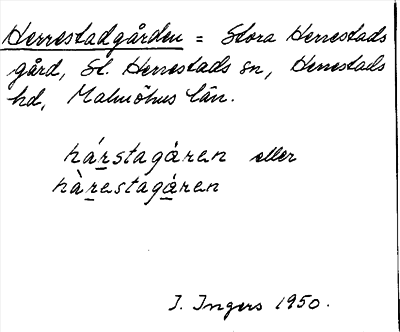 Herrestadgården = Stora Herrestads
gård, St. Herrestads sn, Herrestads
hd, Malmöhus län.
hárstagáren eller
hàrestagáren
I. Ingers 1950.